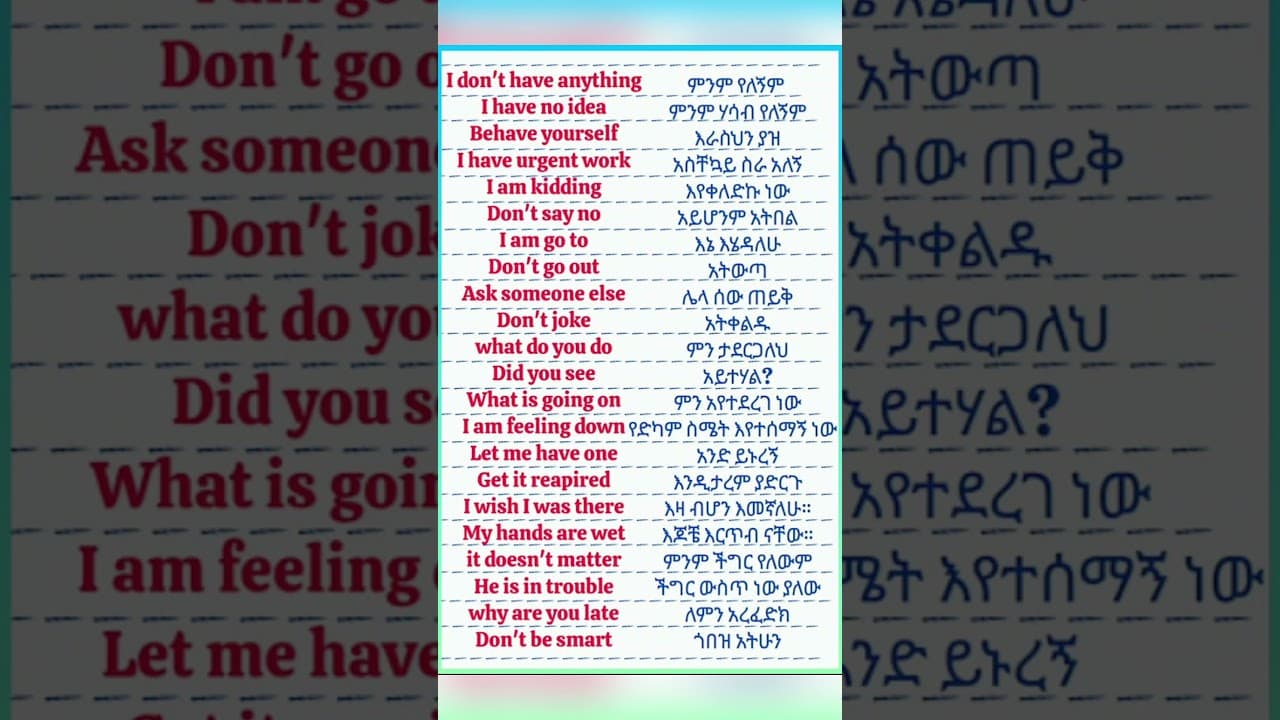 I don't have anything ምንም የለኝም
I have no idea ምንም ሃሳብ የለኝም
Behave yourself እራስህን ያዝ
I have urgent work አስቸኳይ ስራ አለኝ
I am kidding እየቀለድኩ ነው
Don't say no አይሆንም አትበል
I am go to እኔ እሄዳለሁ
Don't go out አትውጣ
Ask someone else ሌላ ሰው ጠይቅ
Don't joke አትቀልዱ
what do you do ምን ታደርጋለህ
Did you see አይተሃል?
What is going on ምን እየተደረገ ነው
I am feeling down የድካም ስሜት እየተሰማኝ ነው
Let me have one አንድ ይኑረኝ
Get it reapired እንዲታረም ያድርጉ
I wish I was there እዛ ብሆን እመኛለሁ።
My hands are wet እጆቼ እርጥብ ናቸው።
it doesn't matter ምንም ችግር የለውም
He is in trouble ችግር ውስጥ ነው ያለው
why are you late ለምን አረፈድክ
Don't be smart ጎበዝ አትሁን